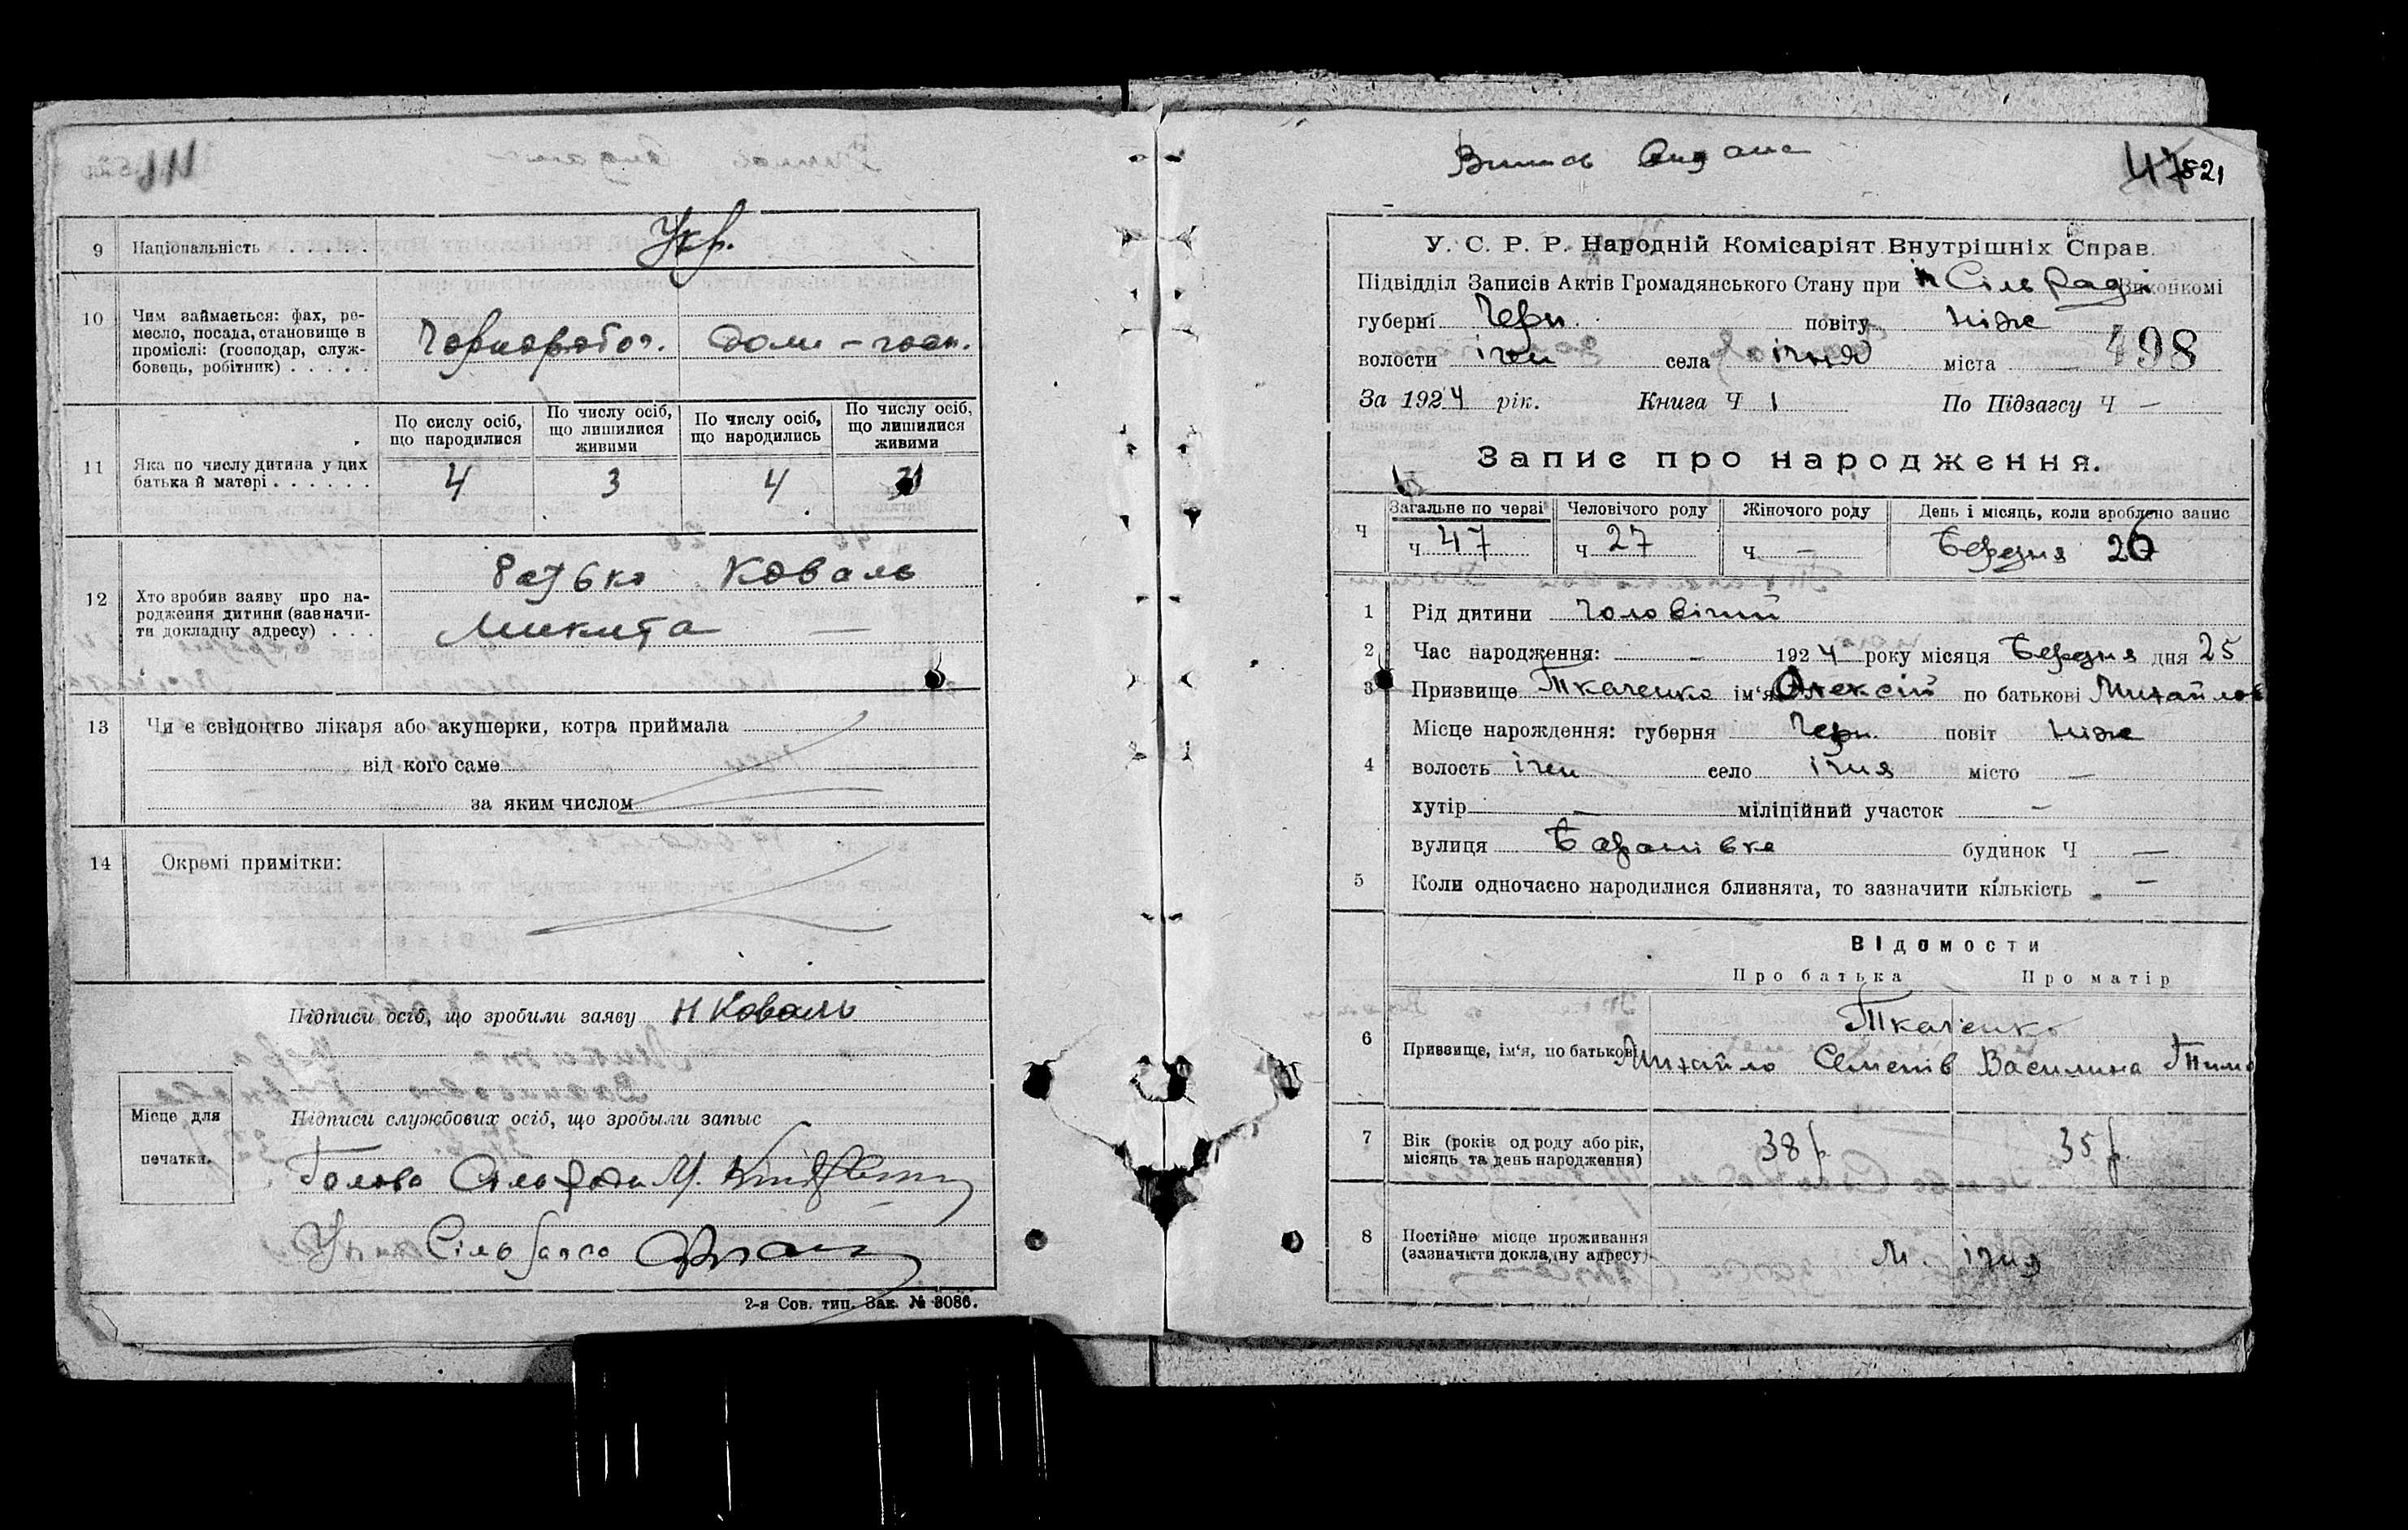 9 Національність . . . . . Укр.
10 Чим займається: фах, ре-
месло, посада, становище в
проміслі: (господар, служ-
бовець, робітник) . . . . .
Чорнороботч. Дом – госп.
По сислу осіб, що народилися
По числу осіб, що лишилися живими
По числу осіб, що народились
По числу осіб, що лишилися живими
11 Яка по числу дитина у цих
батька й матері . . . . . .
4 3 4 3
12 Хто зробив заяву про на-
родження дитини (зазначи-
ти докладну адресу) . . .
Батько Коваль
Микита —
13 Чи є свідоцтво лікаря або акушерки, котра приймала
від кого саме
за яким числом
14 Окремі примітки:
Підписи осіб, що зробили заяву Н Коваль
Місце для
печатки.
Підписи службових осіб, що зробыли запыс
Голова Сільради М.
2-я Сов. тип. Зак. № 3086.
Випис видано
47 821
У. С. Р. Р. Народній Комісаріят Внутрішніх Справ.
Підвідділ Записів Актів Громадянського Стану при Сільраді Виконкомі
губерні Черн. повіту Ніже
498
волости Ічен села Ічня міста —
За 1924 рік. Книга Ч 1 По Підзагсу Ч —
Запис про народження.
Ч Загальне по черзі Человічого роду Жіночого роду День і місяць, коли зроблено запис
ч 47 ч 27 ч — Березня 26
1 Рід дитини Чоловічий
2 Час народження: — 1924 року місяця Березня дня 25
3 Призвище Ткаченко ім'я Олексій по батькові Михайлов
Місце нарождення: губерня Черн. повіт Ніже
4 волость Ічен село Ічня місто —
хутір — міліційний участок —
вулиця Баранівка будинок Ч —
5 Коли одночасно народилися близнята, то зазначити кількість —
Відомости
Про батька Про матір
Ткаченко
6 Призвище, ім'я, по батькові Михайло Семенів Василина Тимо
7 Вік (років од роду або рік,
місяць та день народження)
38 р. 35 р.
8 Постійне місце проживання
(зазначити докладну адресу)
М Ічня